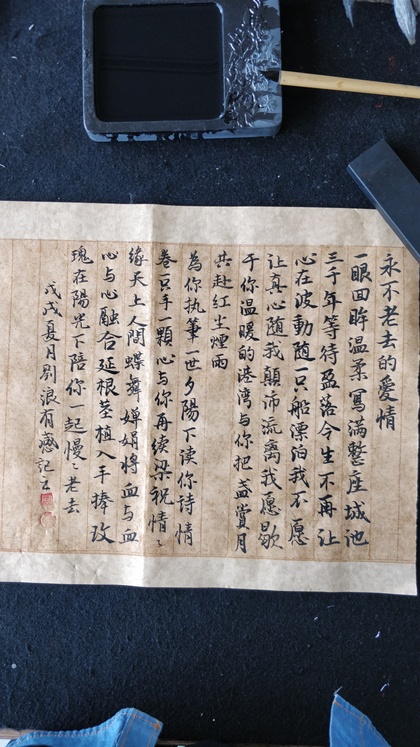 永不老去的愛情
一眼回眸温柔寫滿整座城池
三千年等待盈落今生不再让
心在波動隨一只船漂泊我不愿
让真心隨我顛沛流离我愿歇
于你温暖的港湾与你把盏賞月
共赴红尘煙雨
為你执筆一世夕陽下读你诗情
卷只手一顆心与你再续梁祝情〻
缘天上人間蝶舞婵娟將血与血
心与心融合延根茎植入手捧玫
瑰在陽光下陪你一起慢〻老去
戊戌夏月别浪有感記之